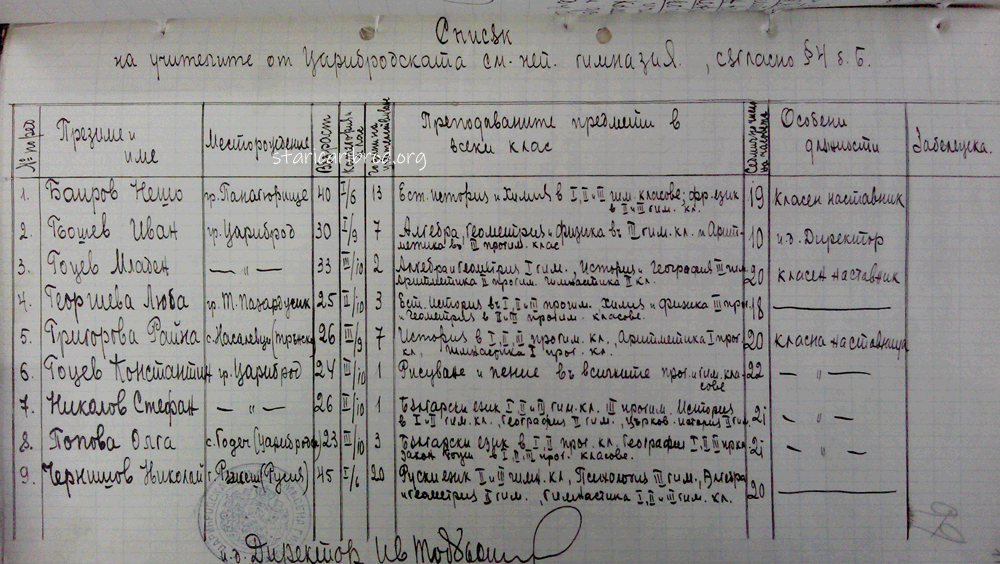 Списък
на учителите от Царибродската см. неп. гимназия, съгласно § 4 б. Б.
№ по ред
Презиме и име
Месторождение
Возраст
Категория
клас
Години на учителствуване
Преподаваните предмети в всеки клас
Седмично число на часовете
Особени длъжности
Забележка.
staricaribrod.org
1. Баиров Нешо гр. Панагюрище 40 I/6 13 Ест. история и Химия в I, II и III гим. класове; фр. език 19 класен наставник
в I и III гим. кл.
2. Бошев Иван гр. Цариброд 30 I/9 7 Алгебра, Геометрия и физика въ III гим. кл. и Арит- 10 и. д. Директор
метика въ III прогим. клас
3. Гоцев Младен — „ — 33 III/10 2 Алгебра и Геометрия I гим., История и География III гим. 20 класен наставник
Аритметика II прогим. гимнастика II кл.
4. Георгиева Люба гр. Т. Пазарджик 25 II/10 3 Ест. История въ I, II и III прогим. Химия и физика III прог. 18 —
и Геометрия в II и III прогим. класове.
5. Григорова Райна с. Насалевци (Трънско) 26 III/9 7 История в I, II, III прогим кл., Аритметика I прог. 20 класна наставница
кл., гимнастика I прог. кл.
6. Гоцев Константин гр. Цариброд 24 III/10 1 Рисуване и пение въ всичките прог. и гим. кла- 22 — „ —
сове
7. Николов Стефан — „ — 26 II/10 1 Български език I, II и III гим. кл. III прогим. История 21 — „ —
в I и II гим. кл., География II гим., Църков. история III гим.
8. Попова Олга с. Годеч (Царибродско) 23 III/10 3 Български език в I, II прог. кл. География I, II, III прог. 21 — „ —
Закон Божи в I, II, III прог. класове.
9. Чернишов Николай г. (Русия) 45 I/6 20 Руски език I и III гимн. кл., Психология III гим., Алгебра 20 —
и геометрия II гим., Гимнастика I, II и III гим. кл.
и. д. Директор Ив.